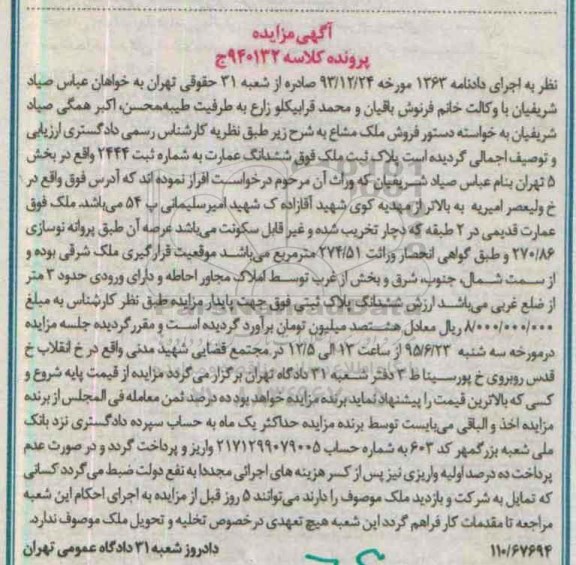 آگهی مزایده
پرونده کلاسه ۹۴۰۱۳۲ج
نظر به اجرای دادنامه ۱۳۶۳ مورخه ۹۳/۱۲/۲۴ صادره از شعبه ۳۱ حقوقی تهران به خواهان عباس صیاد
شریفیان با وکالت خانم فرنوش باقیان و محمد قرابیکلو زارع به طرفیت طیبه،محسن، اکبر همگی صیاد
شریفیان به خواسته دستور فروش ملک مشاع به شرح زیر طبق نظریه کارشناس رسمی دادگستری ارزیابی
و توصیف اجمالی گردیده است پلاک ثبت ملک فوق ششدانگ عمارت به شماره ثبت ۲۴۴۴ واقع در بخش
۵ تهران بنام عباس صیاد شریفیان که وراث آن مرحوم درخواست افراز نموده اند که آدرس فوق واقع در
خ ولیعصر امیریه به بالاتر از مهدیه کوی شهید آقازاده ک شهید امیرسلیمانی پ ۵۴ می‌باشد. ملک فوق
عمارت قدیمی در ۲ طبقه که دچار تخریب شده و غیر قابل سکونت می‌باشد عرصه آن طبق پروانه نوسازی
۲۷۰/۸۶ و طبق گواهی انحصار وراثت ۲۷۴/۵۱ مترمربع می‌باشد موقعیت قرارگیری ملک شرقی بوده و
از سمت شمال، جنوب، شرق و بخش از غرب توسط املاک مجاور احاطه و دارای ورودی حدود ۳ متر
از ضلع غربی می‌باشد ارزش ششدانگ پلاک ثبتی فوق جهت پایدار مزایده طبق نظر کارشناس به مبلغ
۸/۰۰۰/۰۰۰/۰۰۰ ریال معادل هشتصد میلیون تومان برآورد گردیده است و مقرر گردیده جلسه مزایده
درمورخه سه شنبه ۹۵/۶/۲۳ از ساعت ۱۳ الی ۱۲/۵ در مجتمع قضایی شهید مدنی واقع در خ انقلاب خ
قدس روبروی خ پورسینا ط ۳ دفتر شعبه ۳۱ دادگاه تهران برگزار می‌گردد مزایده از قیمت پایه شروع و
کسی که بالاترین قیمت را پیشنهاد نماید برنده مزایده خواهد بود ده درصد ثمن معامله فی المجلس از برنده
مزایده اخذ و الباقی می‌بایست توسط برنده مزایده حداکثر یک ماه به حساب سپرده دادگستری نزد بانک
ملی شعبه بزرگمهر کد ۶۰۳ به شماره حساب ۲۱۷۱۲۹۹۰۷۹۰۰۵ واریز و پرداخت گردد و در صورت عدم
پرداخت ده درصد اولیه واریزی نیز پس از کسر هزینه های اجرائی مجددا به نفع دولت ضبط می گردد کسانی
که تمایل به شرکت و بازدید ملک موصوف را دارند می‌توانند ۵ روز قبل از مزایده به اجرای احکام این شعبه
مراجعه تا مقدمات کار فراهم گردد این شعبه هیچ تعهدی درخصوص تخلیه و تحویل ملک موصوف ندارد.
۱۱۰/۶۷۶۹۴ دادروز شعبه ۳۱ دادگاه عمومی تهران